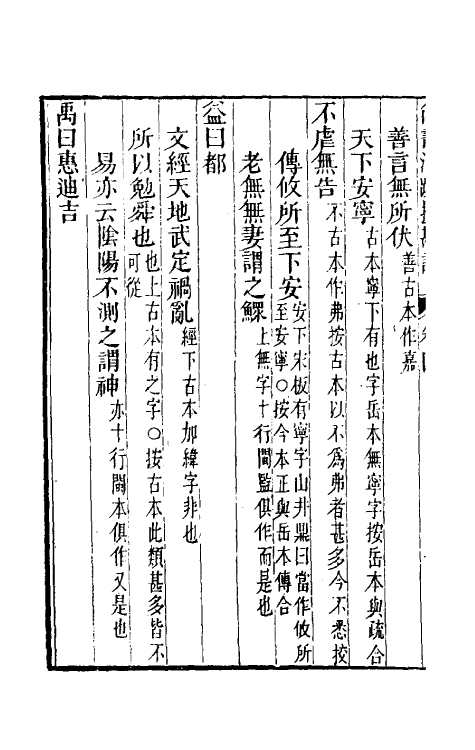 善言無所伏 善古本作嘉
天下安寧 古本寧下有也字岳本無寧字按岳本與疏合
不虐無告 不古本作弗按古本以不爲弗者甚多今不悉挍
傳攸所至下安 安下宋板有寧字山井鼎曰當作攸所
至安寧○按今本正與岳本傳合
老無無妻謂之鰥 上無字十行閩監俱作而是也
益曰都
文經天地武定禍亂 經下古本加緯字非也
所以勉舜也 也上古本有之字○按古本此類甚多皆不
可從
易亦云陰陽不測之謂神 亦十行閩本俱作又是也
禹曰惠迪吉